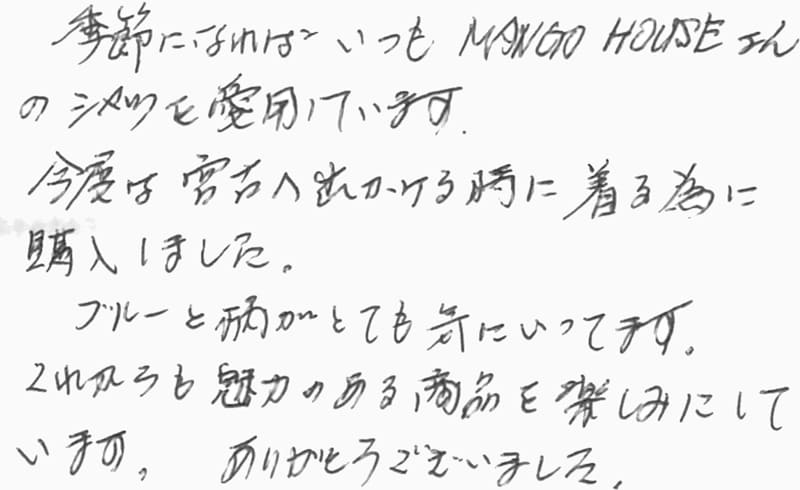 季節になればいつも MANGO HOUSEさん
のシャツを愛用しています。
今度は宮古へ出かける時に着る為に
購入しました。
ブルーと柄がとても気にいってます。
これからも魅力のある商品を楽しみにして
います。 ありがとうございました。